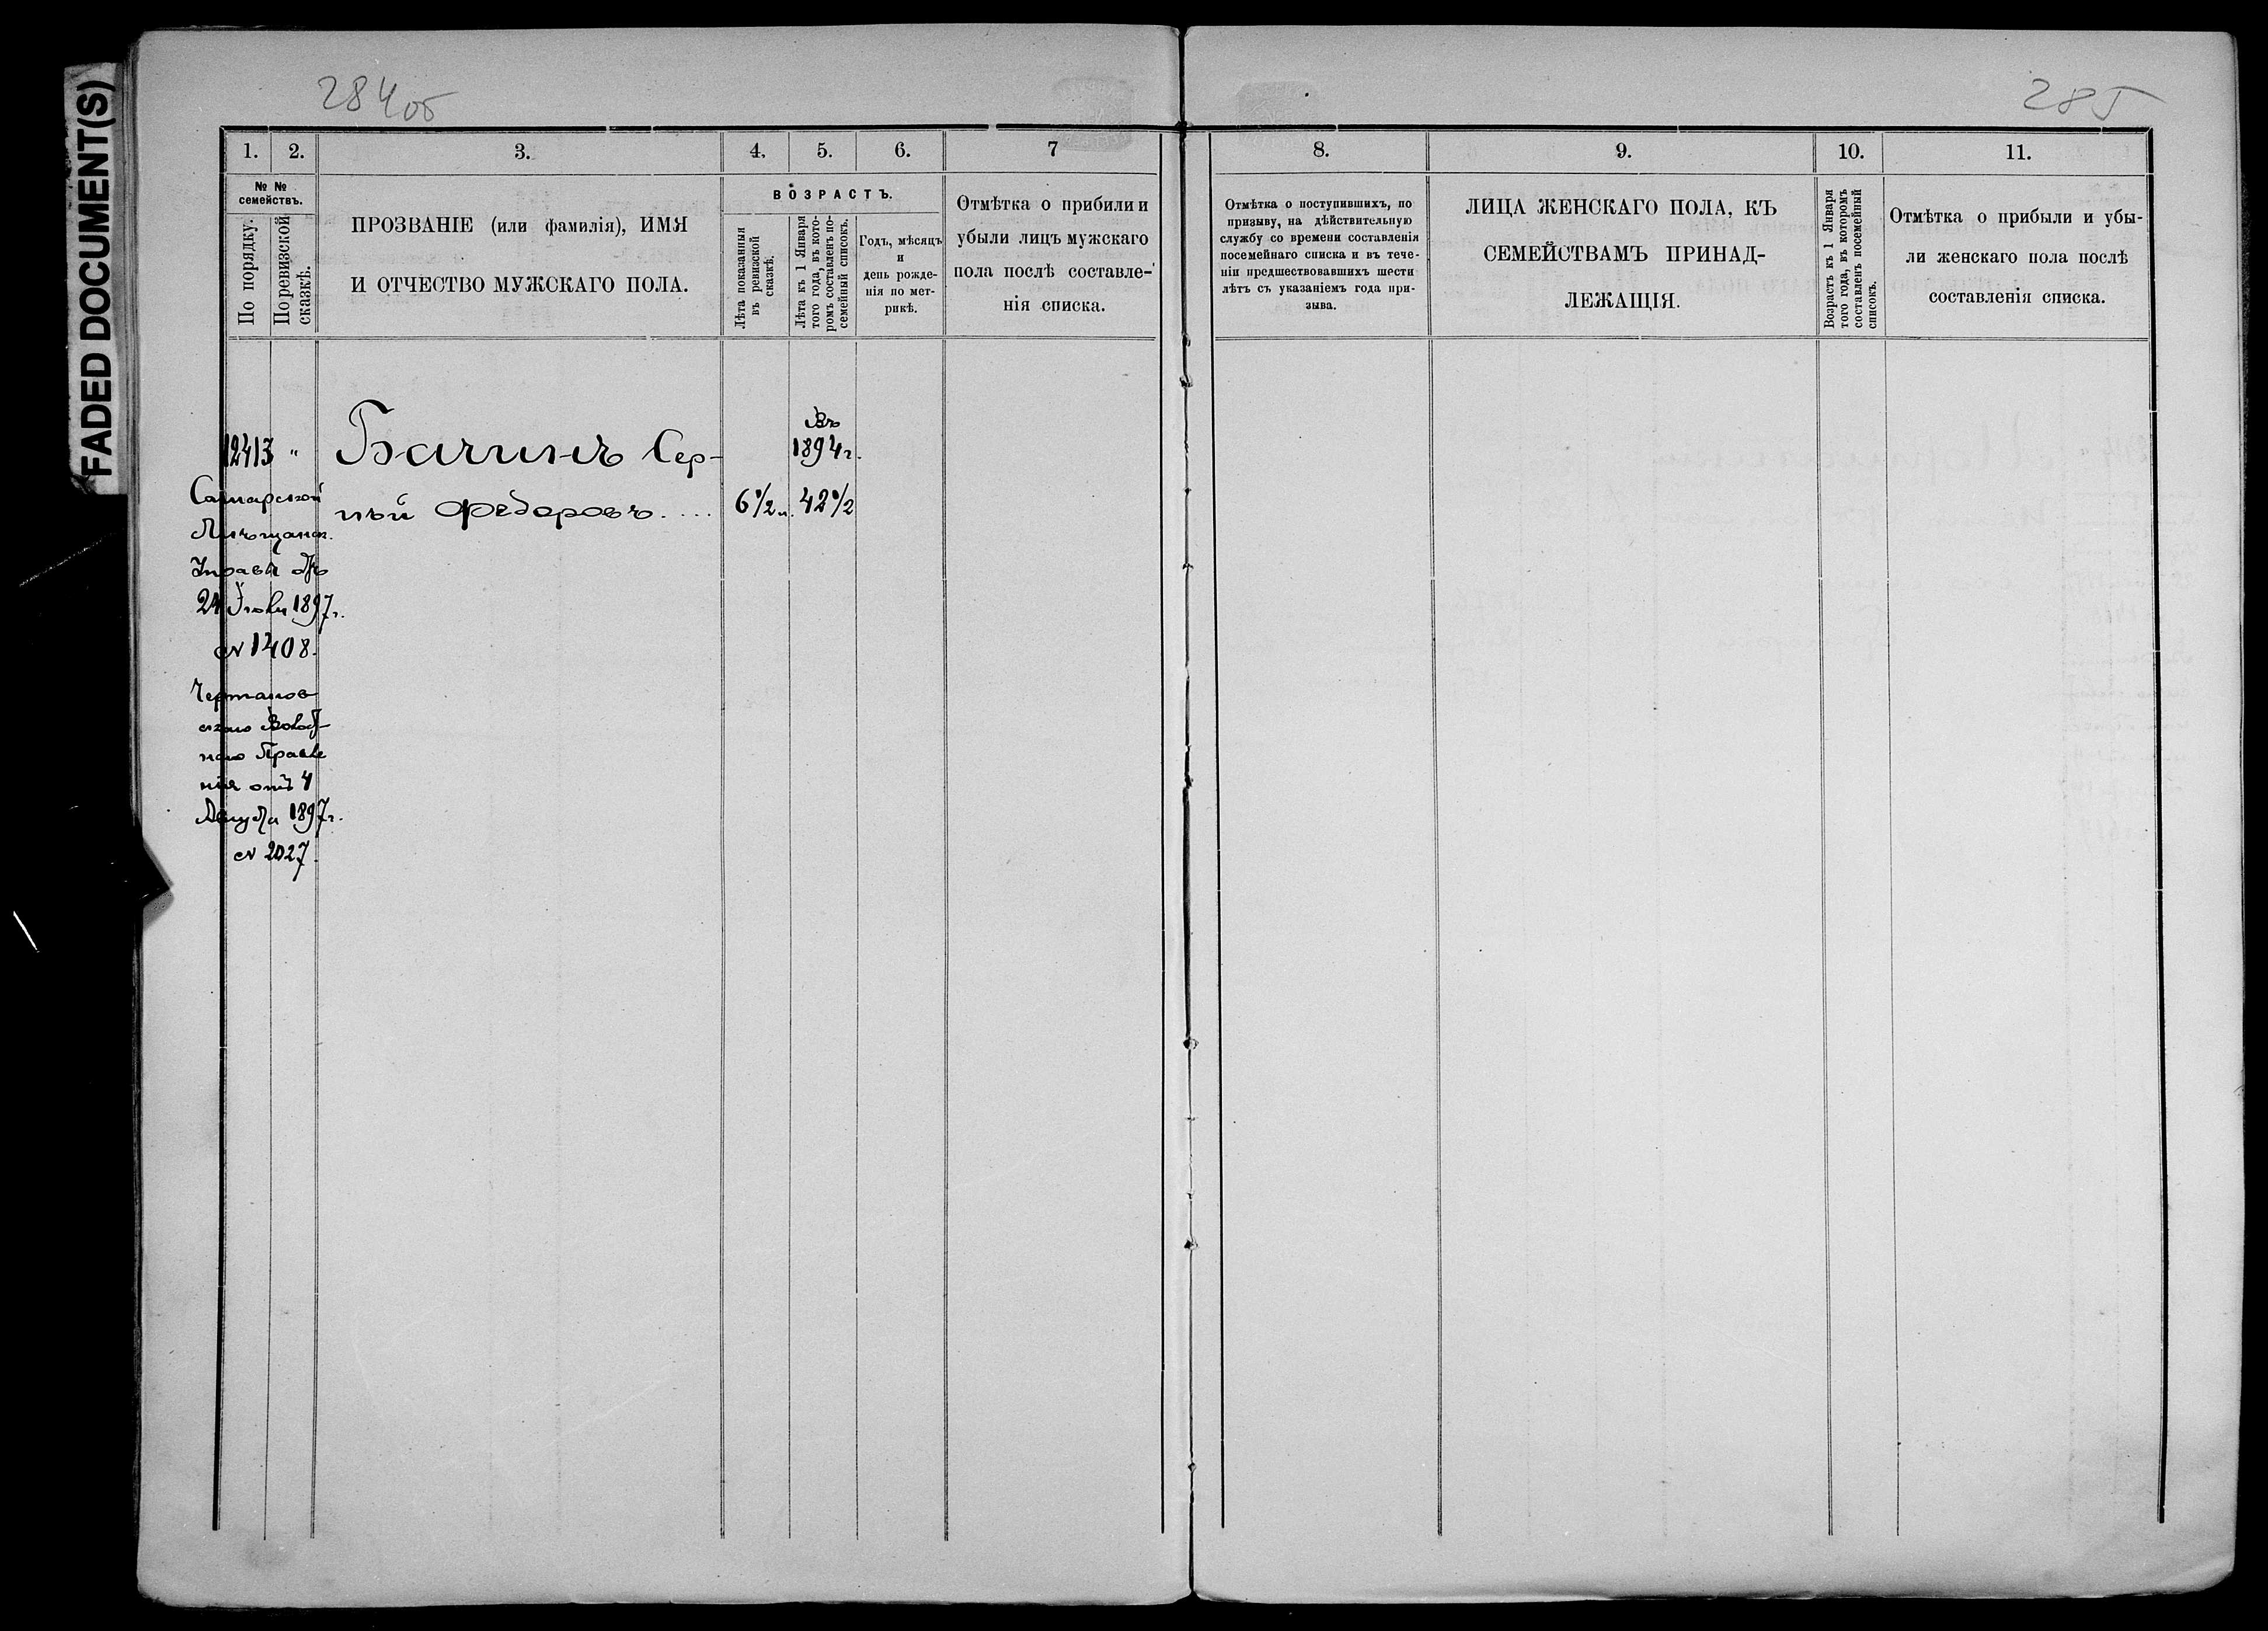 FADED DOCUMENT(S)
284 об
285
1. 2. 3. 4. 5. 6. 7
№ №
семействъ.
По порядку.
По ревизской
сказкѣ.
ПРОЗВАНІЕ (или фамилія), ИМЯ
И ОТЧЕСТВО МУЖСКАГО ПОЛА.
ВОЗРАСТЪ.
Лѣта показанныя
въ ревизской
сказкѣ.
Лѣта къ 1 Января
того года, въ кото-
ромъ составленъ по-
семейный списокъ.
Годъ, мѣсяцъ
и
день рожде-
нія по мет-
рикѣ.
Отмѣтка о прибили и
убыли лицъ мужскаго
пола послѣ составле-
нія списка.
8. 9. 10. 11.
Отмѣтка о поступившихъ, по
призыву, на дѣйствительную
службу со времени составленія
посемейнаго списка и въ тече-
ніи предшествовавшихъ шести
лѣтъ съ указаніемъ года при-
зыва.
ЛИЦА ЖЕНСКАГО ПОЛА, КЪ
СЕМЕЙСТВАМЪ ПРИНАД-
ЛЕЖАЩІЯ.
Возрастъ къ 1 Января
того года, въ которомъ
составленъ посемейный
списокъ.
Отмѣтка о прибыли и убы-
ли женскаго пола послѣ
составленія списка.
Въ
12413 " Бачинъ Сер- 1894 г.
гѣй Федоровъ.... 6½ 42½
Самарской
Мѣщанск.
Управы отъ
24 Іюля 1897 г.
№ 1408.
Чертанов
скаго Волост
наго Правле
нія отъ 4
Августа 1897 г.
№ 2027.